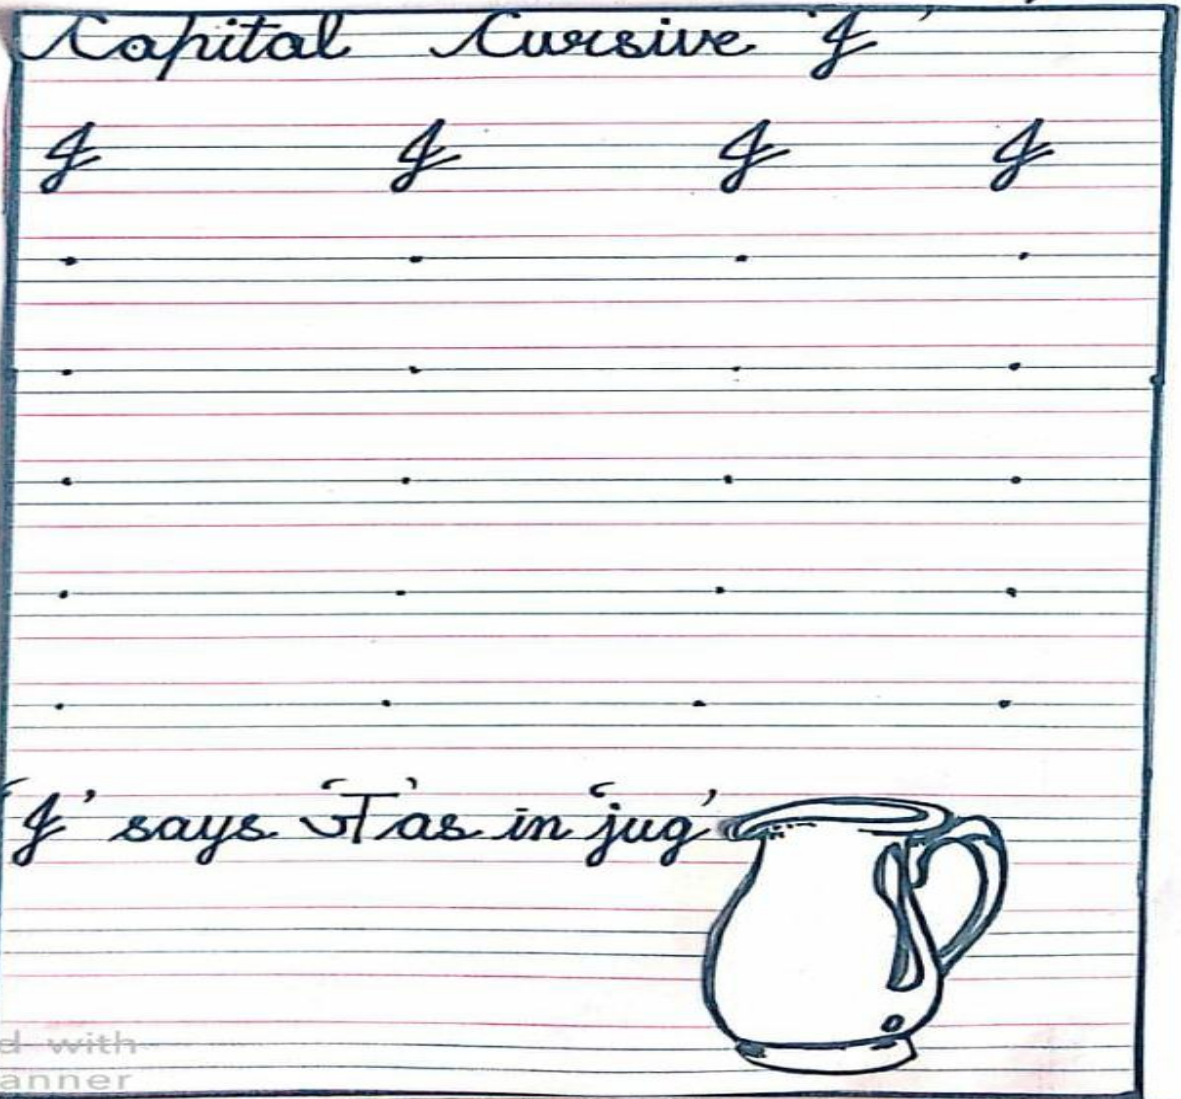 Capital Cursive 'J'
J J J J
'J' says 'ज' as in 'jug'
d with
anner